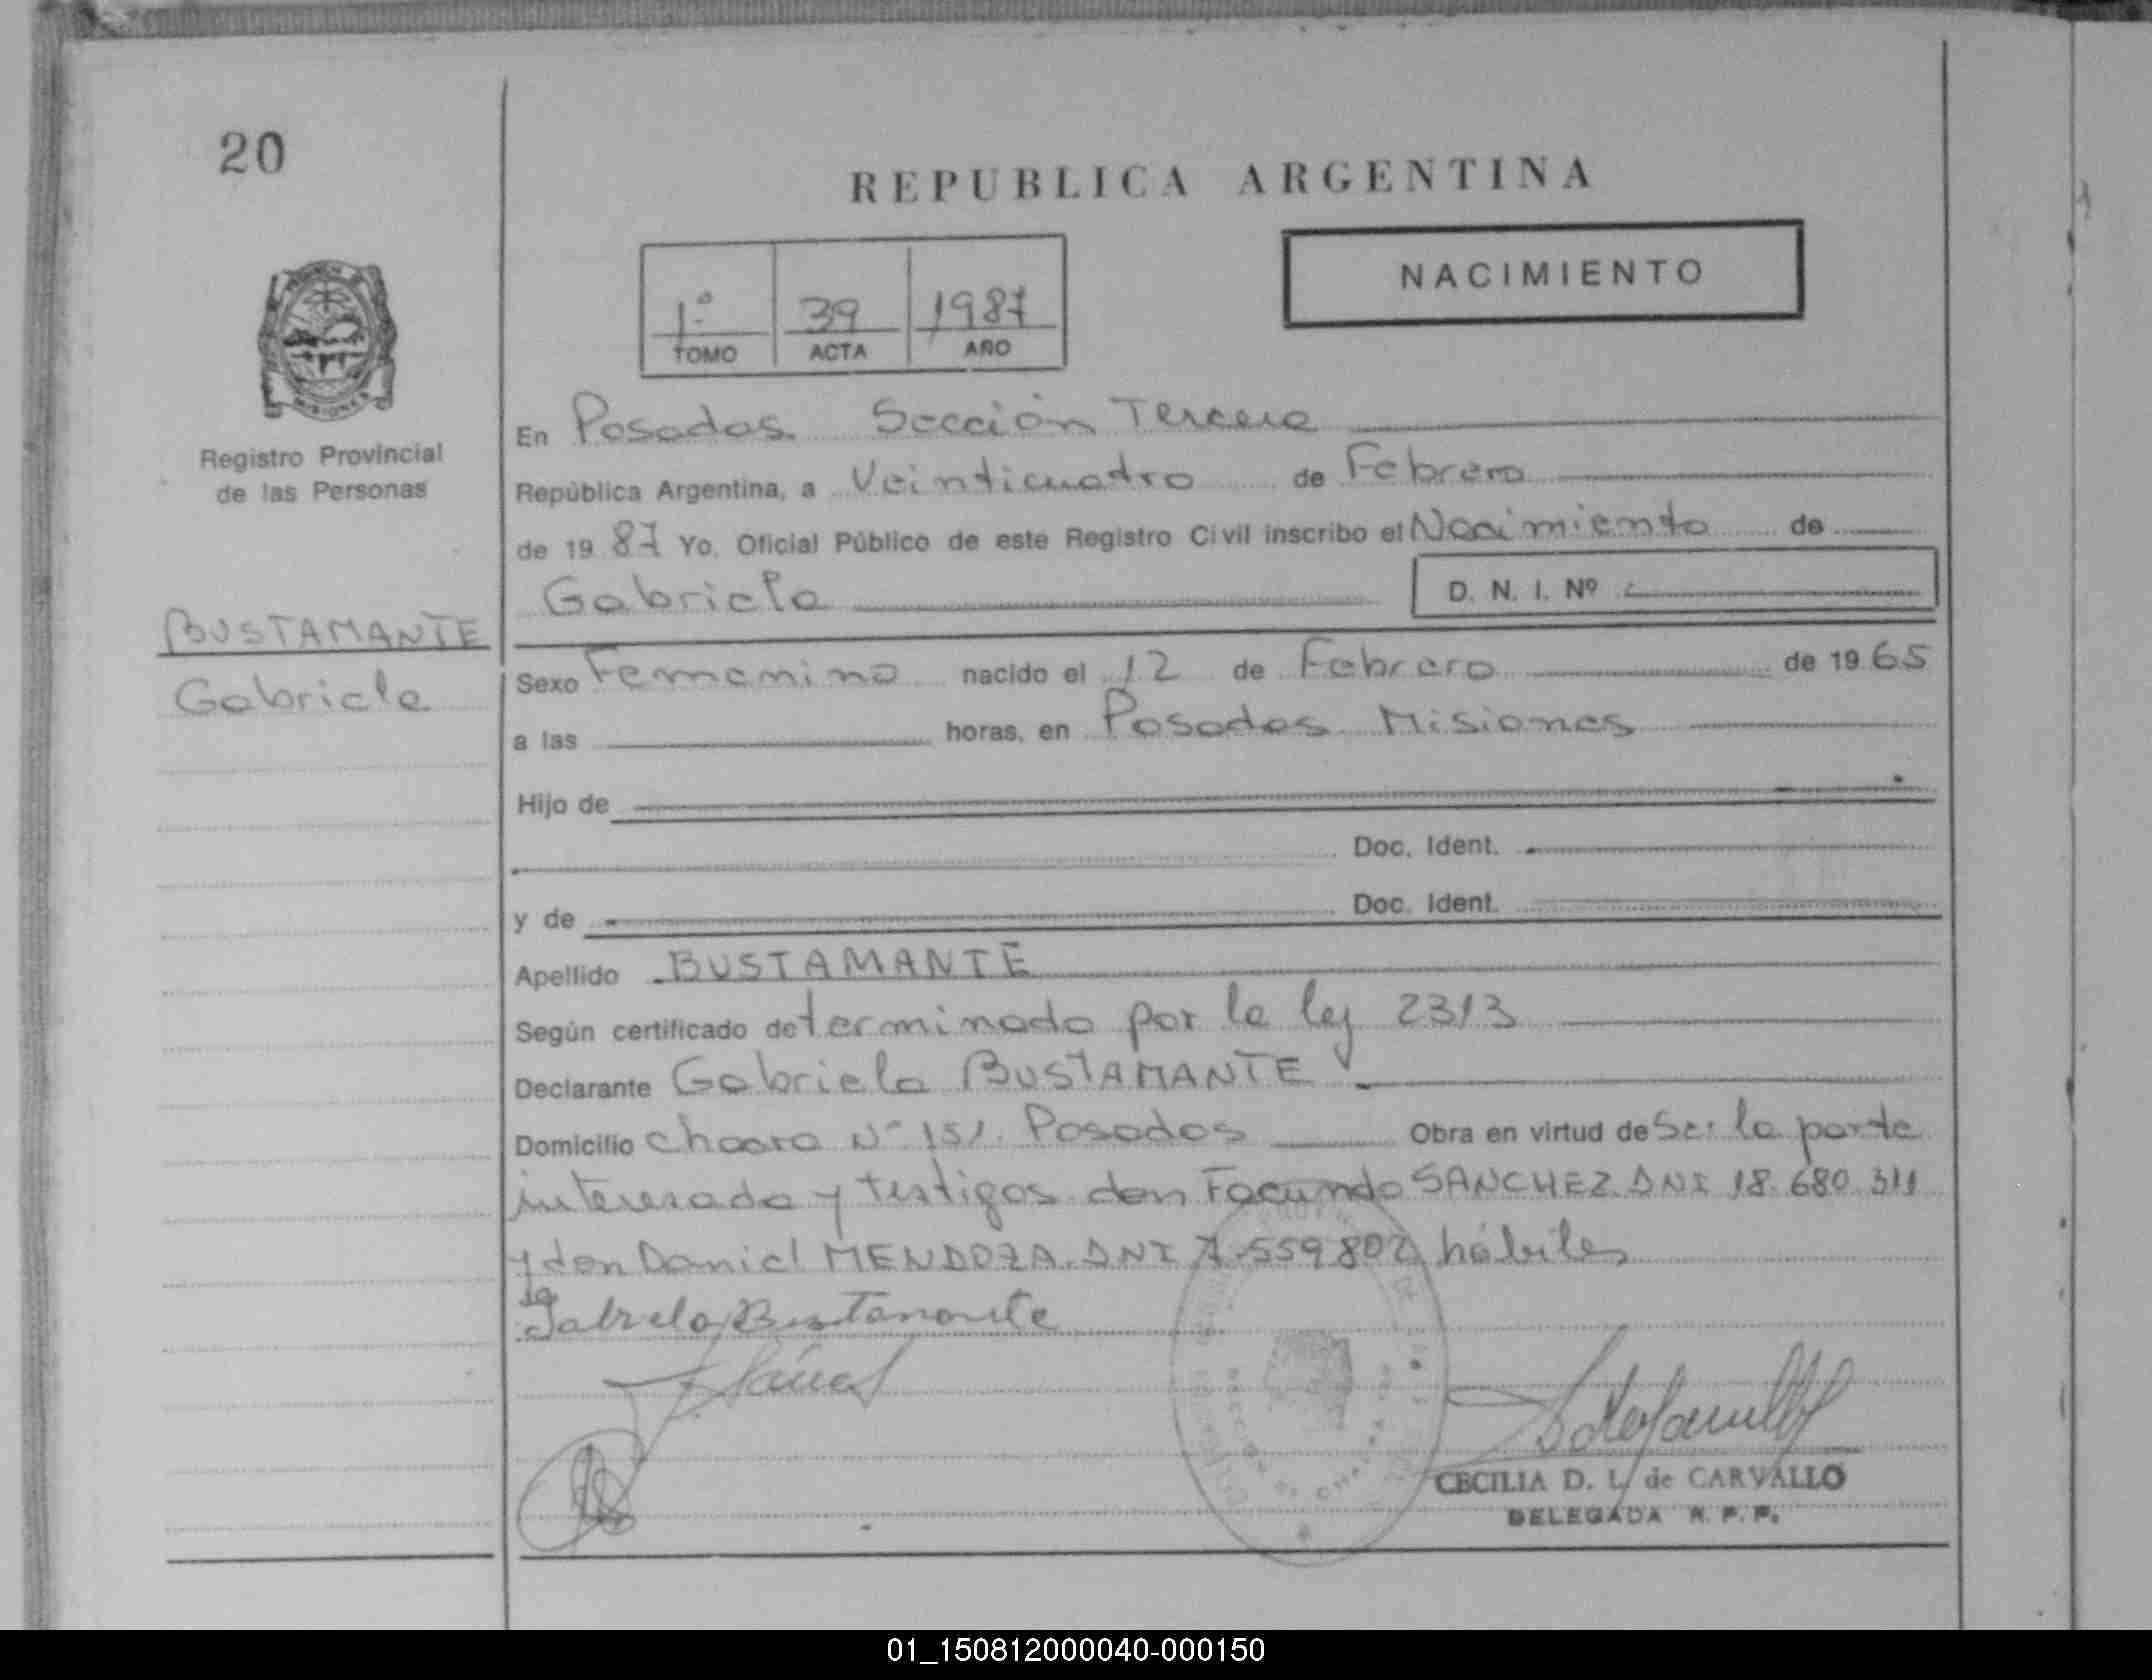 20
REPUBLICA ARGENTINA
NACIMIENTO
1º 39 1987
TOMO ACTA AÑO
MISIONES
Registro Provincial
de las Personas
BUSTAMANTE
Gabriela
En Posadas Sección Tercera
República Argentina, a Veinticuatro de Febrero
de 19 87 Yo, Oficial Público de este Registro Civil inscribo el Nacimiento de
Gabriela D. N. I. Nº
Sexo Femenino nacido el 12 de Febrero de 19 65
a las horas, en Posadas Misiones
Hijo de
Doc. Ident.
y de Doc. Ident.
Apellido BUSTAMANTE
Según certificado determinado por la ley 2313
Declarante Gabriela BUSTAMANTE
Domicilio chacra Nº 151. Posadas Obra en virtud de Ser la parte
interesada y testigos don Facundo SANCHEZ DNI 18.680.311
y don Daniel MENDOZA. DNI 7.559.802 hábiles
Gabriela Bustamante
CECILIA D. L. de CARVALLO
DELEGADA R. P. P.
01_150812000040-000150